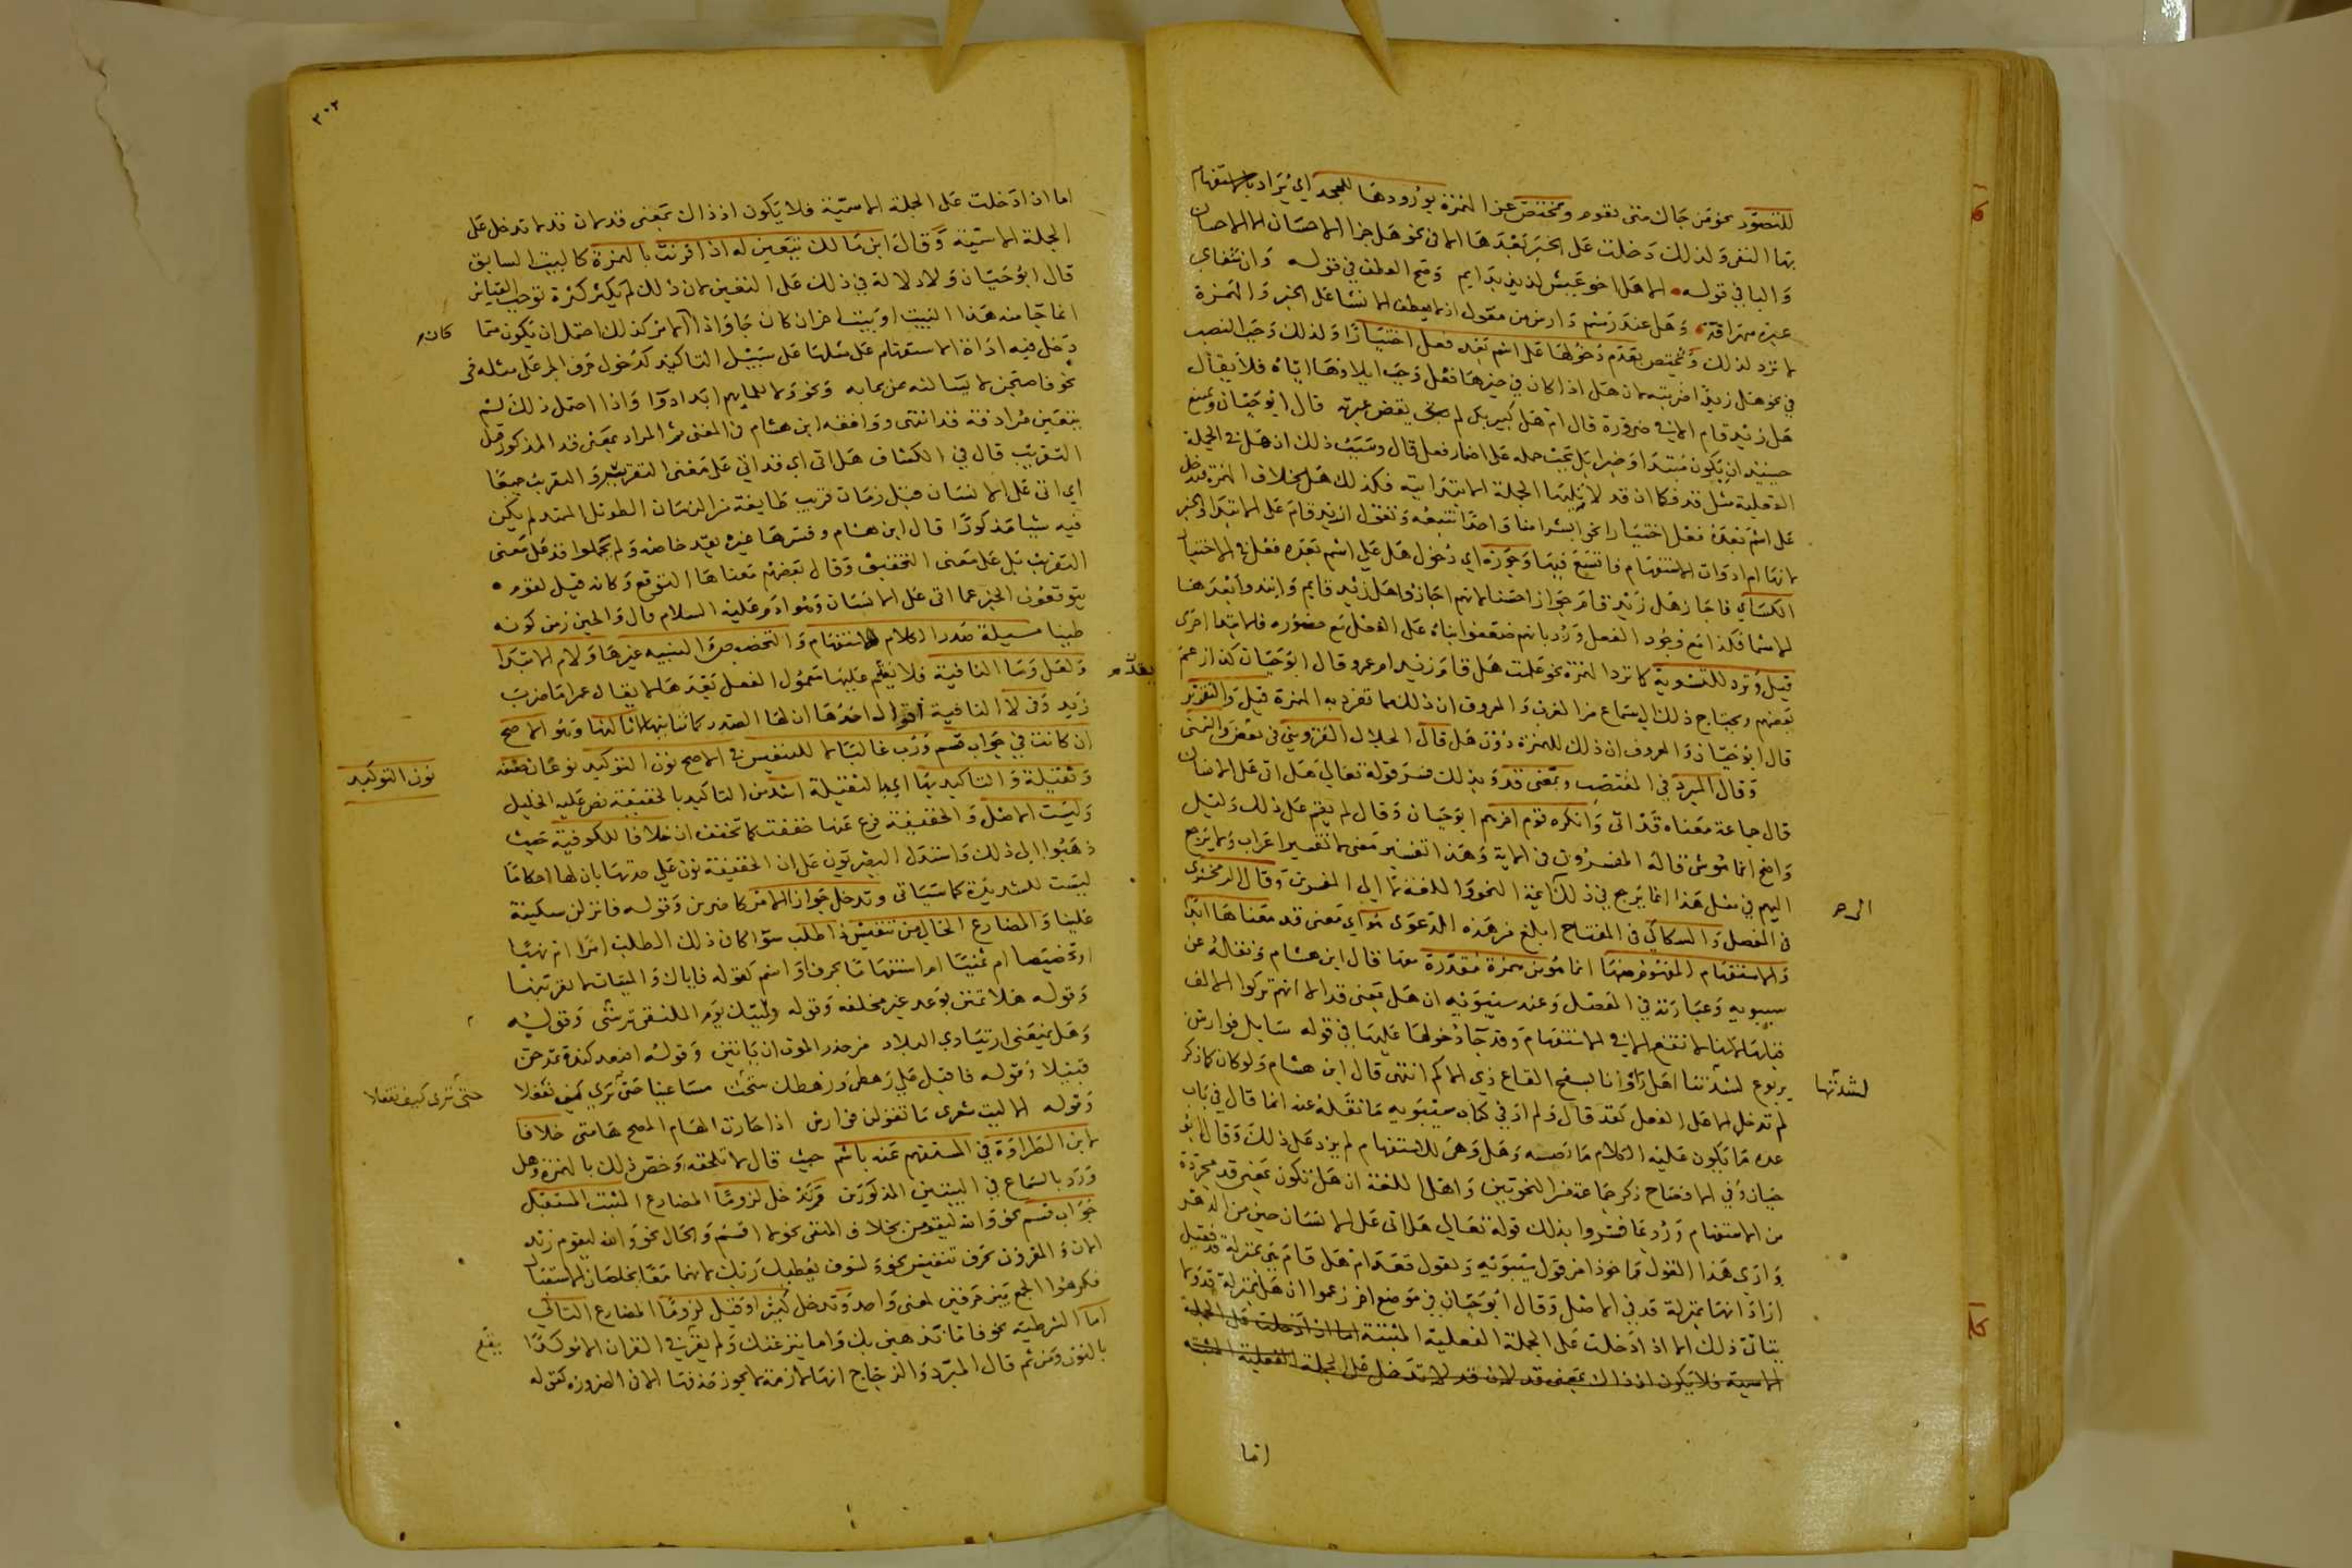 للتصور نحو من جاك متى تقوم وتختص عن الهمزة بورودها للجحد اي يراد بالاستفهام
بها النفي ولذلك دخلت على الخبر بعدها الا في نحو هل جزا الاحسان الا الاحسان
والبا في قوله الا هل اخو عيش لذيذ بدايم وصح العطف في قوله وان شفاي
عبرة مهراقة وهل عند رسم دارس من معول اذ لا يعطف الانشا على الخبر والهمزة
لا ترد لذلك وتختص بعدم دخولها على اسم بعده فعل اختيارا ولذلك وجب النصب
في نحو هل زيدا ضربته لان هل اذا كان في حيزها فعل وجب ايلاوها اياه فلا يقال
هل زيد قام الا في ضرورة قال ام هل كبير بكى لم يقض عبرته قال ابو حيان ويمتنع
حينئذ ان يكون مبتدا وخبرا بل يجب حمله على اضمار فعل قال وسبب ذلك ان هل في الجملة
الفعلية مثل قد فكما ان قد لا تليها الجملة الابتدائية فكذلك هل بخلاف الهمزة فتدخل
على اسم بعده فعل اختيارا نحو ابشرا منا واحدا نتبعه وتقول ازيد قام على الابتدا والخبر
لانها ام ادوات الاستفهام فاتسع فيها وجوزه اي دخول هل على اسم بعده فعل في الاختيار
الكساي فاجاز هل زيد قام جوازا حسنا لانهم اجازوا هل زيد قايم وابتدوا بعدها
الاسما فكذا مع وجود الفعل ورد بانهم ضعفوا بناه على الفعل مع حضوره فالابتدا احرى
قيل وترد للتسوية كما ترد الهمزة نحو علمت هل قام زيد ام عمرو قال ابو حيان كذا زعم
بعضهم ويحتاج ذلك الى سماع من العرب والمعروف ان ذلك مما تفرد به الهمزة قيل والتقرير
قال ابو حيان والمعروف ان ذلك للهمزة دون هل قال الجلال القزويني في بعض والتمني
وقال المبرد في المقتضب وبمعنى قد وبذلك فسر قوله تعالى هل اتى على الانسان
قال جماعة معناه قد اتى وانكره قوم اخرهم ابو حيان وقال لم يقم على ذلك دليل
واضح انما هو شي قاله المفسرون في الاية وهذا تفسير معنى لا تفسير اعراب ولا يرجع
اليهم في مثل هذا انما يرجع في ذلك الى ايمة النحو واللغة لا الى المفسرين وقال الزمخشري
في المفصل والسكاكي في المفتاح ابلغ من هذه الدعوى هو اي معنى قد معناها ابدا
والاستفهام المفهوم منها انما هو من همزة مقدرة معها قال ابن هشام ونقله عن
سيبويه وعبارته في المفصل وعند سيبويه ان هل بمعنى قد الا انهم تركوا الالف
قبلها لانها لا تقع الا في الاستفهام وقد جا دخولها عليها في قوله سايل فوارس
يربوع لشدتنا اهل راونا بسفح القاع ذي الاكم انتهى قال ابن هشام ولو كان كما ذكر
لم تدخل الا على الفعل كقد قال ولم ار في كتاب سيبويه ما نقله عنه انما قال في باب
عدة ما يكون عليه الكلام ما نصه وهل وهي للاستفهام لم يزد على ذلك وقال ابو
حيان وفي الافصاح ذكر جماعة من النحويين واهل اللغة ان هل تكون بمعنى قد مجردة
من الاستفهام وربما فسروا بذلك قوله تعالى هل اتى على الانسان حين من الدهر
وارى هذا القول ماخوذا من قول سيبويه وتقول قعد ام هل قام بمنزلة قد فقيل
اراد انها بمنزلة قد في الاصل وقال ابو حيان في موضع اخر زعموا ان هل بمنزلة قد ولا
يتاتى ذلك الا اذا دخلت على الجملة الفعلية المثبتة اما اذا دخلت على الجملة
الاسمية فلا يكون اذ ذاك بمعنى قد لان قد لا تدخل على الجملة الفعلية المثبتة
اما
لشدتنا
٣٠٢
اما ان ادخلت على الجملة الاسمية فلا يكون اذ ذاك بمعنى قد لان قد لا تدخل على
الجملة الاسمية وقال ابن مالك تتعين له اذا قرنت بالهمزة كالبيت السابق
قال ابو حيان ولا دلالة في ذلك على التعين لان ذلك لم يكثر كثرة توجب القياس
انما جا منه هذا البيت او بيت اخر ان كان جا واذا الامر كذلك احتمل ان يكون مما
دخل فيه اداة الاستفهام على مثلها على سبيل التاكيد كدخول حرف الجر على مثله في
نحو فاصبحن لا يسالنه عن بما به ونحو ولا للما بهم ابدا دوا واذا احتمل ذلك لم
يتعين مرادفة قد انتهى ووافقه ابن هشام في المغني ثم المراد بمعنى قد المذكور قيل
التقريب قال في الكشاف هل اتى اي قد اتى على معنى التقرير والتقريب جميعا
اي اتى على الانسان قبل زمان قريب طايفة من الزمان الطويل الممتد لم يكن
فيه شيا مذكورا قال ابن هشام وفسرها غيره بقد خاصة ولم يحملوا قد على معنى
التقريب بل على معنى التحقيق وقال بعضهم معناها التوقع وكانه قيل لقوم
يتوقعون الخبر عما اتى على الانسان وهو ادم عليه السلام قال والحين زمن كونه
طينا مسيلة صدر الكلام للاستفهام والتحضيض والتنبيه غيرها ولام الابتدا
ولعل وما النافية فلا يقدم عليها معمول الفعل بعدها لا يقال عمرا ما ضرب
زيد وفي لا النافية اقوال احدها ان لها الصدر كما ثانيها لا ثالثها وهو الاصح
ان كانت في جواب قسم ورب غالبا لا للتنفيس في الاصح نون التوكيد نوعان خفيفة
وثقيلة والتاكيد بها اي بالثقيلة اشد من التاكيد بالخفيفة نص عليه الخليل
وليست الاصل والخفيفة فرع عنها خففت كما تخفف ان خلافا للكوفية حيث
ذهبوا الى ذلك واستدل البصريون على ان الخفيفة نون على حدتها بان لها احكاما
ليست للشديدة كما سياتي وتدخل جوازا الامر كاضربن وقوله فانزلن سكينة
علينا والمضارع الخالي من تنفيس ذا طلب سوا كان ذلك الطلب امرا ام نهيا
او تحضيضا ام تمنيا ام استفهاما بحرف او اسم كقوله فاياك والميتات لا تقربنها
وقوله هلا تمنن بوعد غير مخلفة وقوله فليتك يوم الملتقى ترينني وقوله
وهل يمنعني ارتيادي البلاد من حذر الموت ان ياتين وقوله افبعد كندة تمدحن
قبيلا وقوله فاقبل على رهطي ورهطك نبتحث مساعينا حتى ترى كيف تفعلا
وقوله الا ليت شعري ما تقولن فوارس اذا حارب الهام المصيح هامتي خلافا
لابن الطراوة في المستفهم عنه باسم حيث قال لا تلحقه وخص ذلك بالهمزة وهل
ورد بالسماع في البيتين المذكورين وتدخل لزوما المضارع المثبت المستقبل
جواب قسم نحو والله ليقومن بخلاف المنفي نحو لا اقسم والحال نحو والله ليقوم زيد
الان والمقرون بحرف تنفيس نحو ولسوف يعطيك ربك لانهما معا يخلصان للاستقبال
فكرهوا الجمع بين حرفين لمعنى واحد وتدخل كثيرا وقيل لزوما المضارع التالي
اما الشرطية نحو فاما نذهبن بك واما ينزغنك ولم يقع في القران الا موكدا
بالنون ومن ثم قال المبرد والزجاج انها لازمة لا يجوز حذفها الا في الضرورة كقوله
كان
يقدم
نون التوكيد
حتى ترى كيف تفعلا
يقع